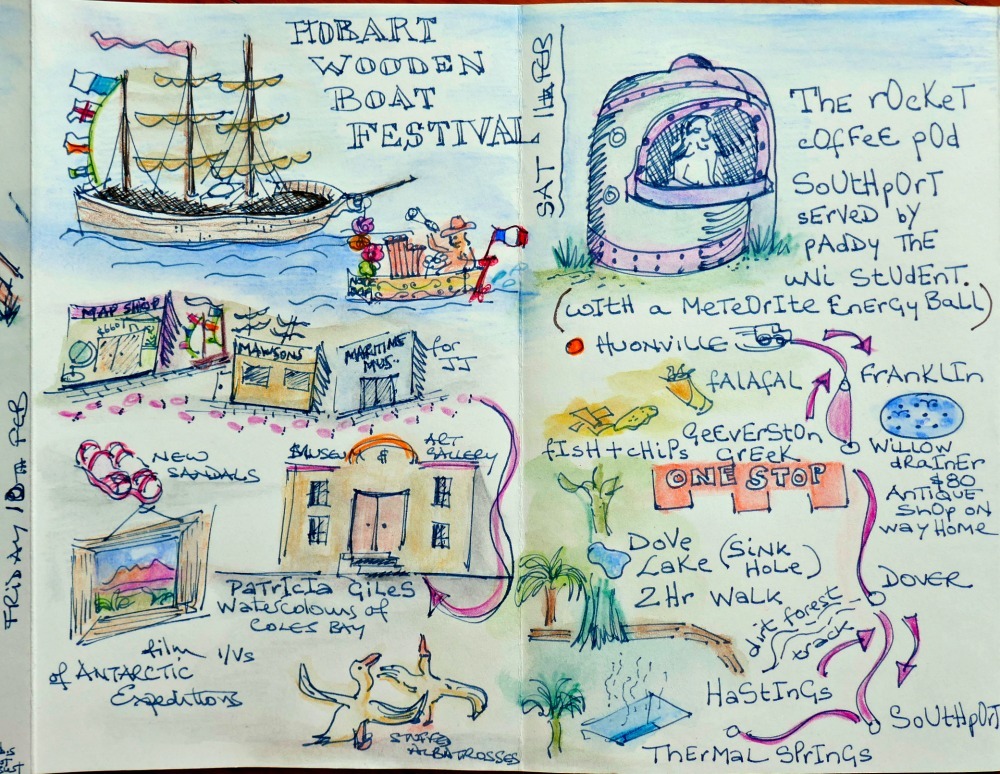 FRIDAY 10TH FEB
HOBART
WOODEN
BOAT
FESTIVAL
MAP SHOP
$660
MAWSONS
MARITIME
MUS.
for
JJ
NEW
SANDALS
MUSEUM &
ART
GALLERY
PATRICIA GILES
WATERCOLOURS of
COLES BAY
film I/Vs
of ANTARCTIC
Expeditions
STUFFD
ALBATROSSES
SAT 11TH FEB
THE rOcKeT
cOfFEE pOd
SOUtHpOrT
sErVeD by
pAddY THE
uNi StUdENT.
(wITH a MeTeOrITe EnErGy BaLL)
HUONVILLE
FrAnKLIn
fALAfAL
GeEVErStOn
fISH + cHIPs GrEEK
WILLOW
dRAINER
$80
ANTIQUE
SHOP ON
way HOME
ONE STOP
DOVE
LAKE (SINK
HOLE)
2 Hr WaLK
DOVER
dirt forest
track
HaStInGs
SoUtHpOrT
THErMaL SPrInGs